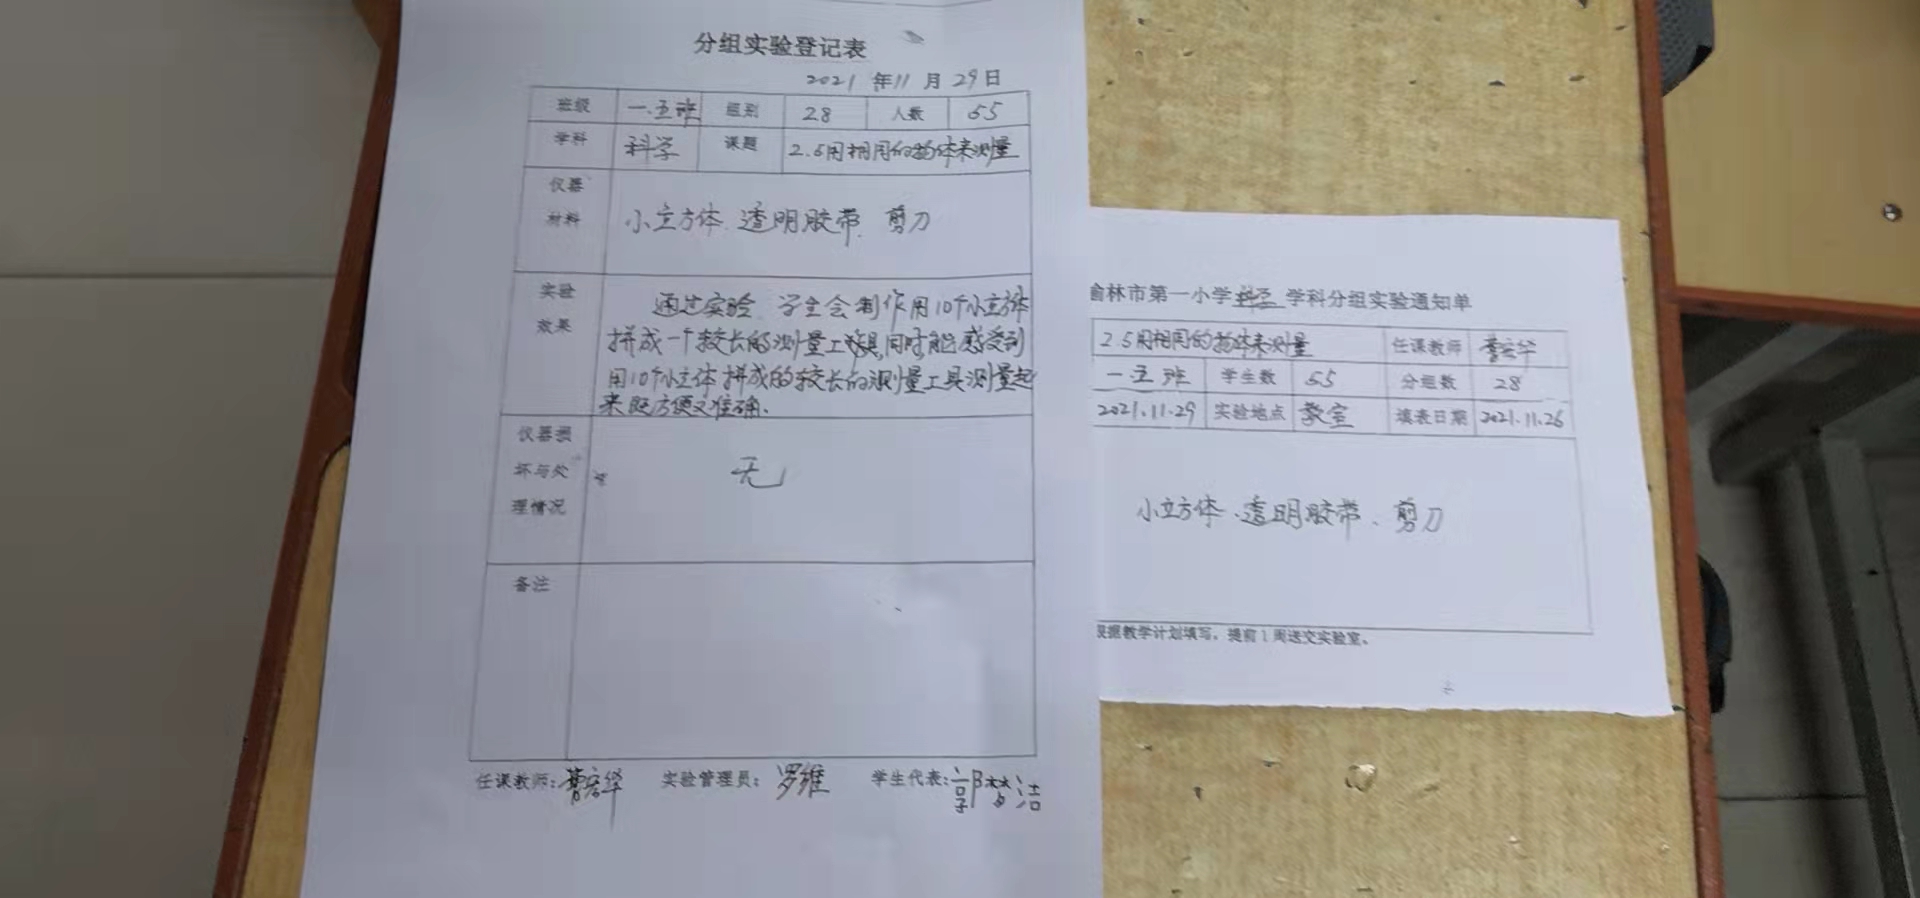 分组实验登记表
2021 年 11 月 29 日
班级 一.五班 组别 28 人数 55
学科 科学 课题 2.5用相同的物体来测量
仪器
材料
小立方体、透明胶带、剪刀
实验
效果
通过实验,学生会制作用10个小立方体
拼成一个较长的测量工具,同时能感受到
用10个小立体拼成的较长的测量工具测量起
来既方便又准确.
仪器损
坏与处
理情况
无
备注
任课教师: 实验管理员: 罗维 学生代表: 郭梦洁
榆林市第一小学 科学 学科分组实验通知单
2.5用相同的物体来测量 任课教师
一.五班 学生数 55 分组数 28
2021.11.29 实验地点 教室 填表日期 2021.11.26
小立方体、透明胶带、剪刀
根据教学计划填写,提前1周送交实验室。